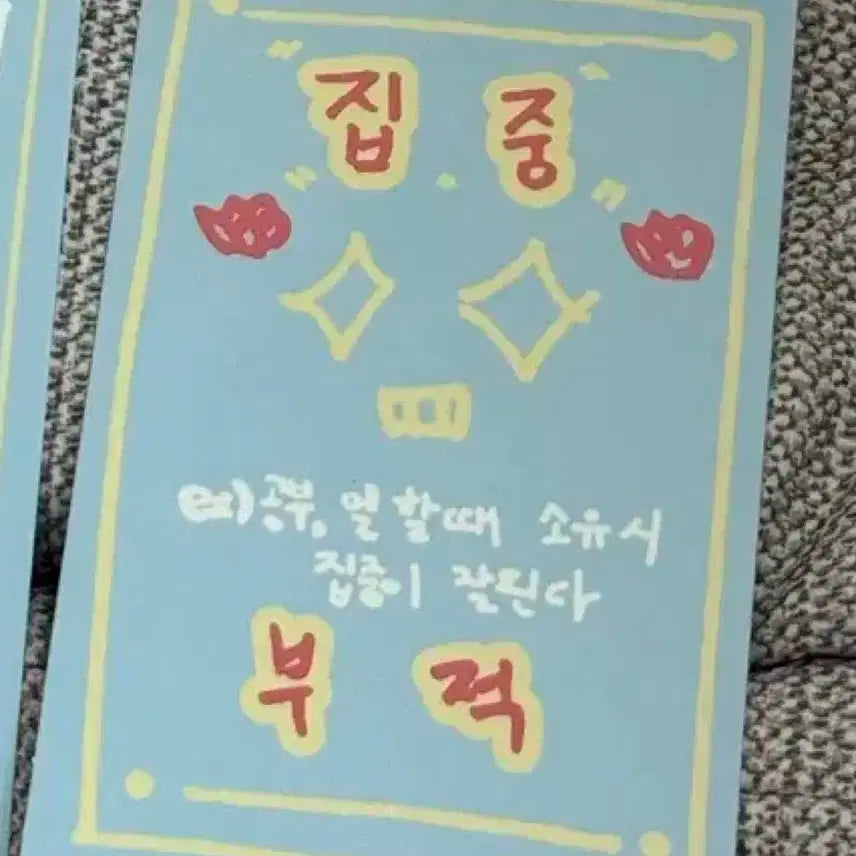 집 중
ex) 공부, 일 할때 소유시
집중이 잘된다
부 적